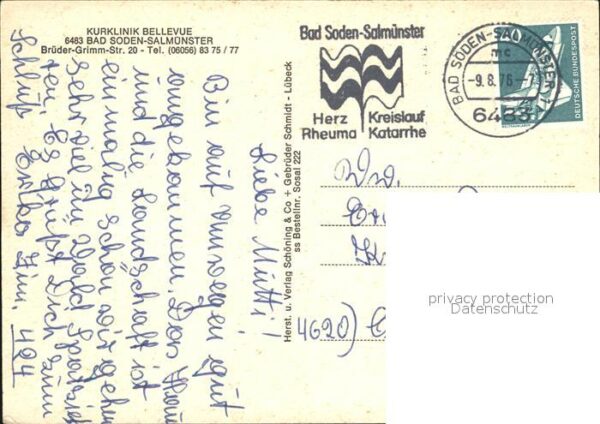 KURKLINIK BELLEVUE
6483 BAD SODEN-SALMÜNSTER
Brüder-Grimm-Str. 20 - Tel. (06056) 83 75 / 77
Bad Soden-Salmünster
Herz Kreislauf
Rheuma Katarrhe
BAD SODEN-SALMÜNSTER 1
mc
-9.8.76-
6483
DEUTSCHE BUNDESPOST
Herst. u. Verlag Schöning & Co + Gebrüder Schmidt - Lübeck
ss Bestellnr. Sosal 222
Liebe Mutti!
Bin auf Umwegen gut
angekommen. Das Haus
und die Landschaft ist
einmalig schön wir gehn
sehr viel im Wald
ten. Es grüßt Dich
4620)
privacy protection
Datenschutz